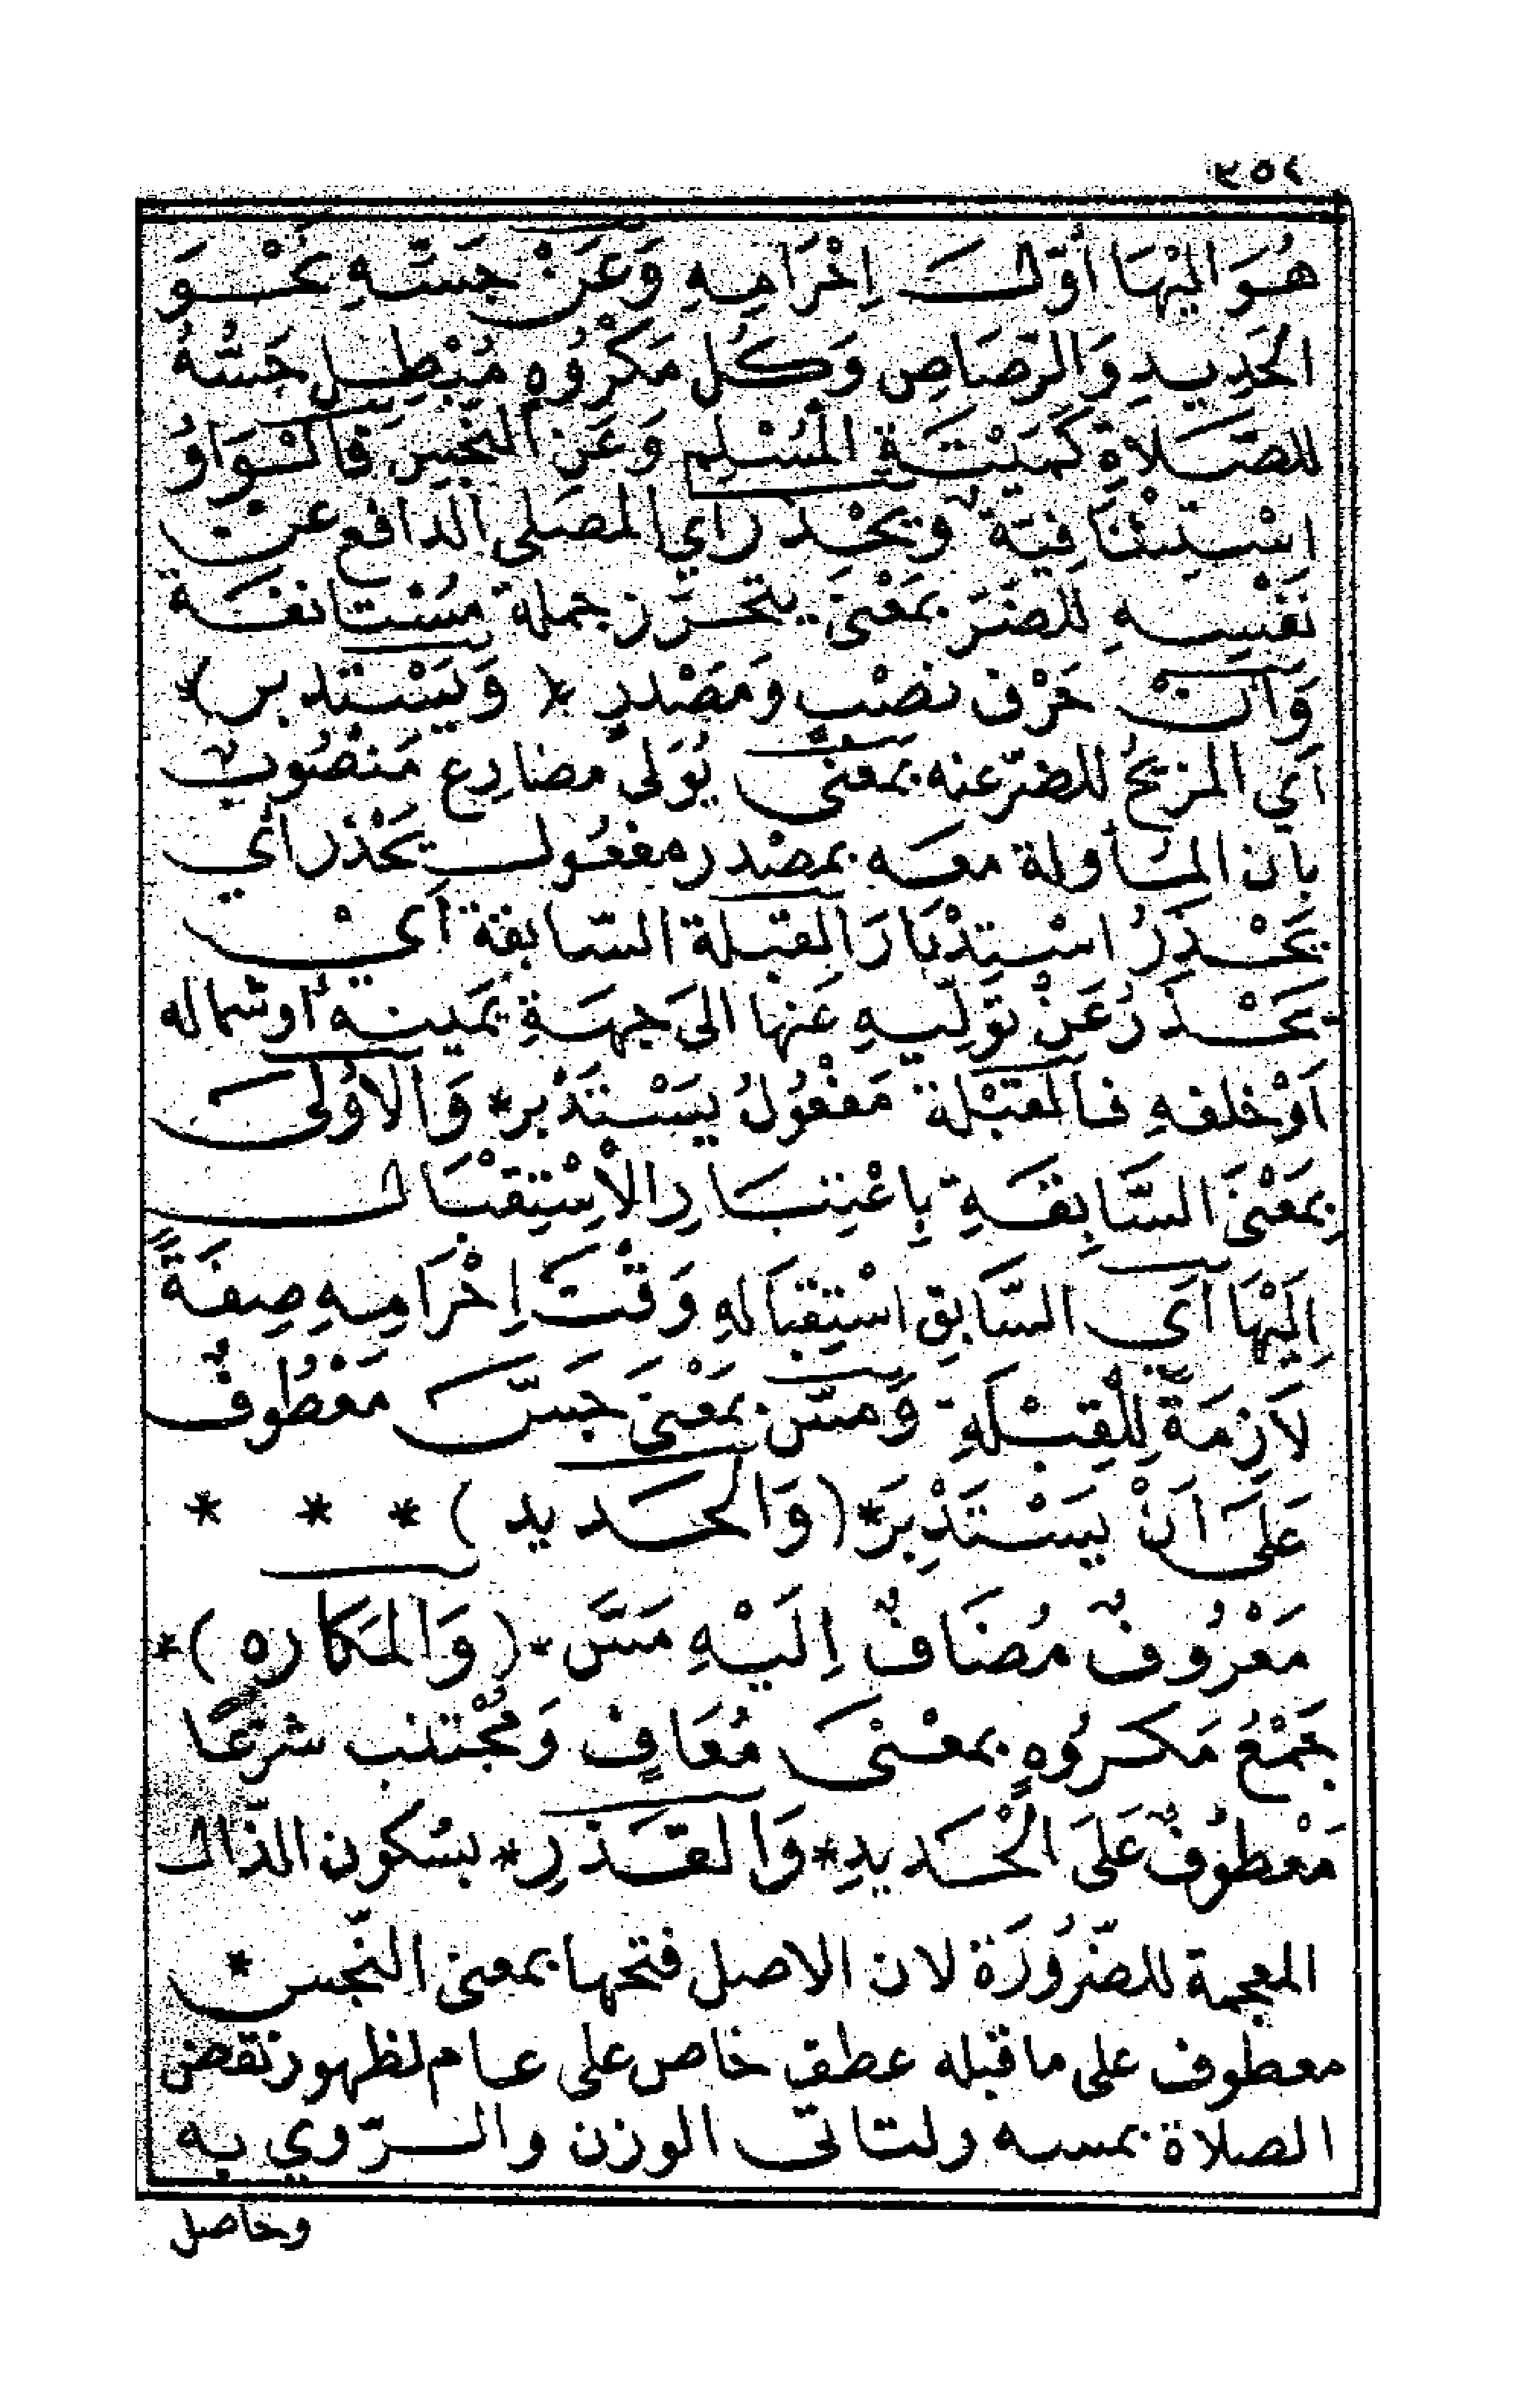 ٢٥٤
هُوَ اليْهَا أوّل اِحْرَامِهِ وَعَنْ جَسّهِ نَحْوَ
الحَدِيدِ وَالرّصَاصِ وَكُل مَكْرُوُهٍ مُبْطِل جَسُّهُ
للصَّلاةِ كَمَيْتَةِ الْمُسْلِم وَعَن النّجَس فَالْوَاوُ
اسْتِئْنَافِيّة ويَحْذَر اي المصَلى الدافع عن
نَفْسِهِ للضرّ بمَعْنىَ يتحرّز جملة مُسْتانفَة
وَانْ حَرْف نصْبٍ وَمَصْدرٍ * (وَيَسْتدبر)*
اَي المزيحُ للضرّ عنه بمعنَى يُوَلى مضارِع مَنْصُوب
بان المأولة معَه بمصْدر مفعُول يحَذْر أي
يَحْذَرُ اسْتِدْبَارَ القبْلة السّابقة اَيْ
يَحْذَرُ عَنْ توَلّيهِ عَنها الىَ جِهَةِ يَمينه أوشماله
اَوْ خلفهِ فالقبْلة مَفْعُولُ يسَسْتَدْبر* وَالاُولىَ
بِمَعْنىَ السَّابِقَةِ بِاعْتِبَارِ الْاِسْتِقبَال
اِلَيْهَا اَى السّابق اسْتِقبَالهِ وَقْت اِحْرَامِهِ صِفَةً
لاَزِمَةٌ لِلْقِبْلَةِ وَمسّ بمَعْنىَ جَسّ مَعْطُوف
عَلىَ انْ يَسْتَدْبِرَ*(وَالحَديد )* * *
مَعْرُوفٌ مُضَافٌ اِلَيْهِ مَسَّ *(وَالمكاره )*
جَمْعُ مَكروُهٍ بمعْنىَ مُعَافٍ وَمُجْتنب شرْعًا
مَعْطوُفٌ عَلىَ الْحَديدِ* وَالقَذرِ* بسُكون الذّال
المعجمة للضّرُورَة لان الاصل فتحها بمعنى النّجس *
معطوف على ماقبله عطف خاص على عام لظهور نقض
الصلاة بمسه ولتاتى الوزن والرّوي به
وحاصل